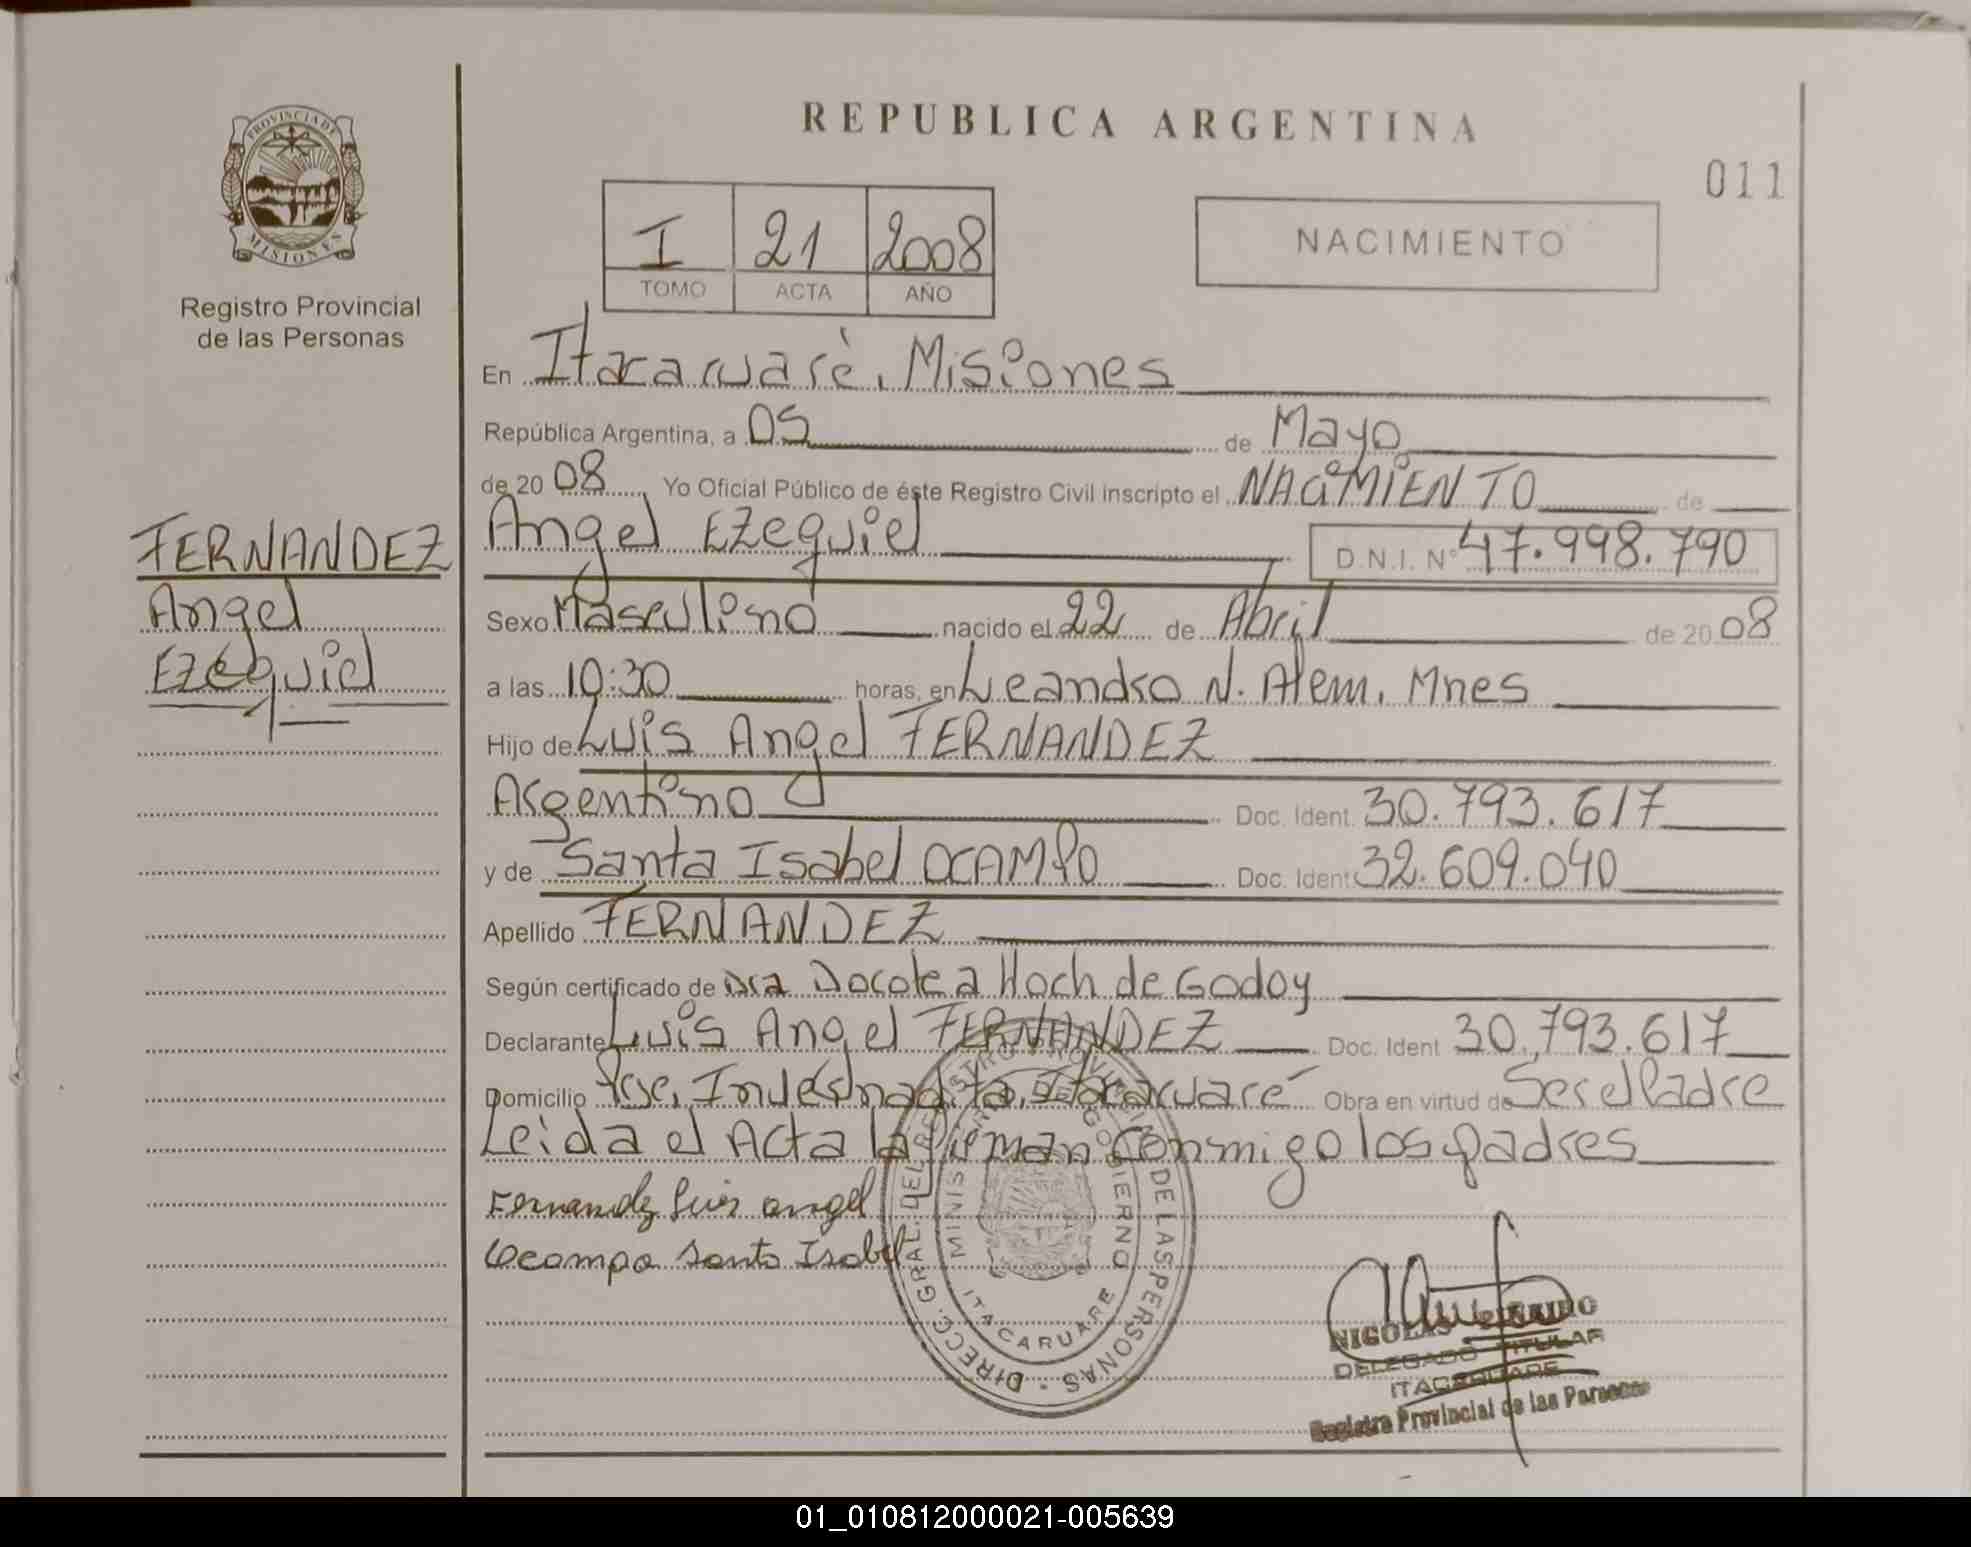 REPUBLICA ARGENTINA
011
PROVINCIA DE MISIONES
Registro Provincial
de las Personas
I 21 2008
TOMO ACTA AÑO
NACIMIENTO
En Itacaruaré, Misiones
República Argentina, a 05 de Mayo
de 20 08 Yo Oficial Público de éste Registro Civil inscripto el NACIMIENTO de
Angel Ezequiel D.N.I. Nº 47.998.790
FERNANDEZ
Angel
Ezequiel
Sexo Masculino nacido el 22 de Abril de 20 08
a las 10:30 horas, en Leandro N. Alem, Mnes
Hijo de Luis Angel FERNANDEZ
Argentino Doc. Ident. 30.793.617
y de Santa Isabel OCAMPO Doc. Ident. 32.609.040
Apellido FERNANDEZ
Según certificado de Dra Dorotea Hoch de Godoy
Declarante Luis Angel FERNANDEZ Doc. Ident 30.793.617
Domicilio Pje. Invernadita, Itacaruaré Obra en virtud de Ser el Padre
Leida el Acta la firman Conmigo los padres
Fernandez Luis angel
Ocampo Santa Isabel
DIRECC. GRAL. DEL REGISTRO PROVINCIAL DE LAS PERSONAS
MINIST. DE GOBIERNO
ITACARUARE
NICOLAS
DELEGADO TITULAR
ITACARUARE
Registro Provincial de las Personas
01_010812000021-005639